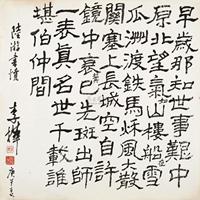 早歲那知世事艱中
原北望氣如山樓船夜雪
瓜洲渡鐵馬秋風大散
關塞上長城空自許
鏡中衰鬢已先斑出師
一表真名世千載誰
堪伯仲間
陸游書憤
李鐸